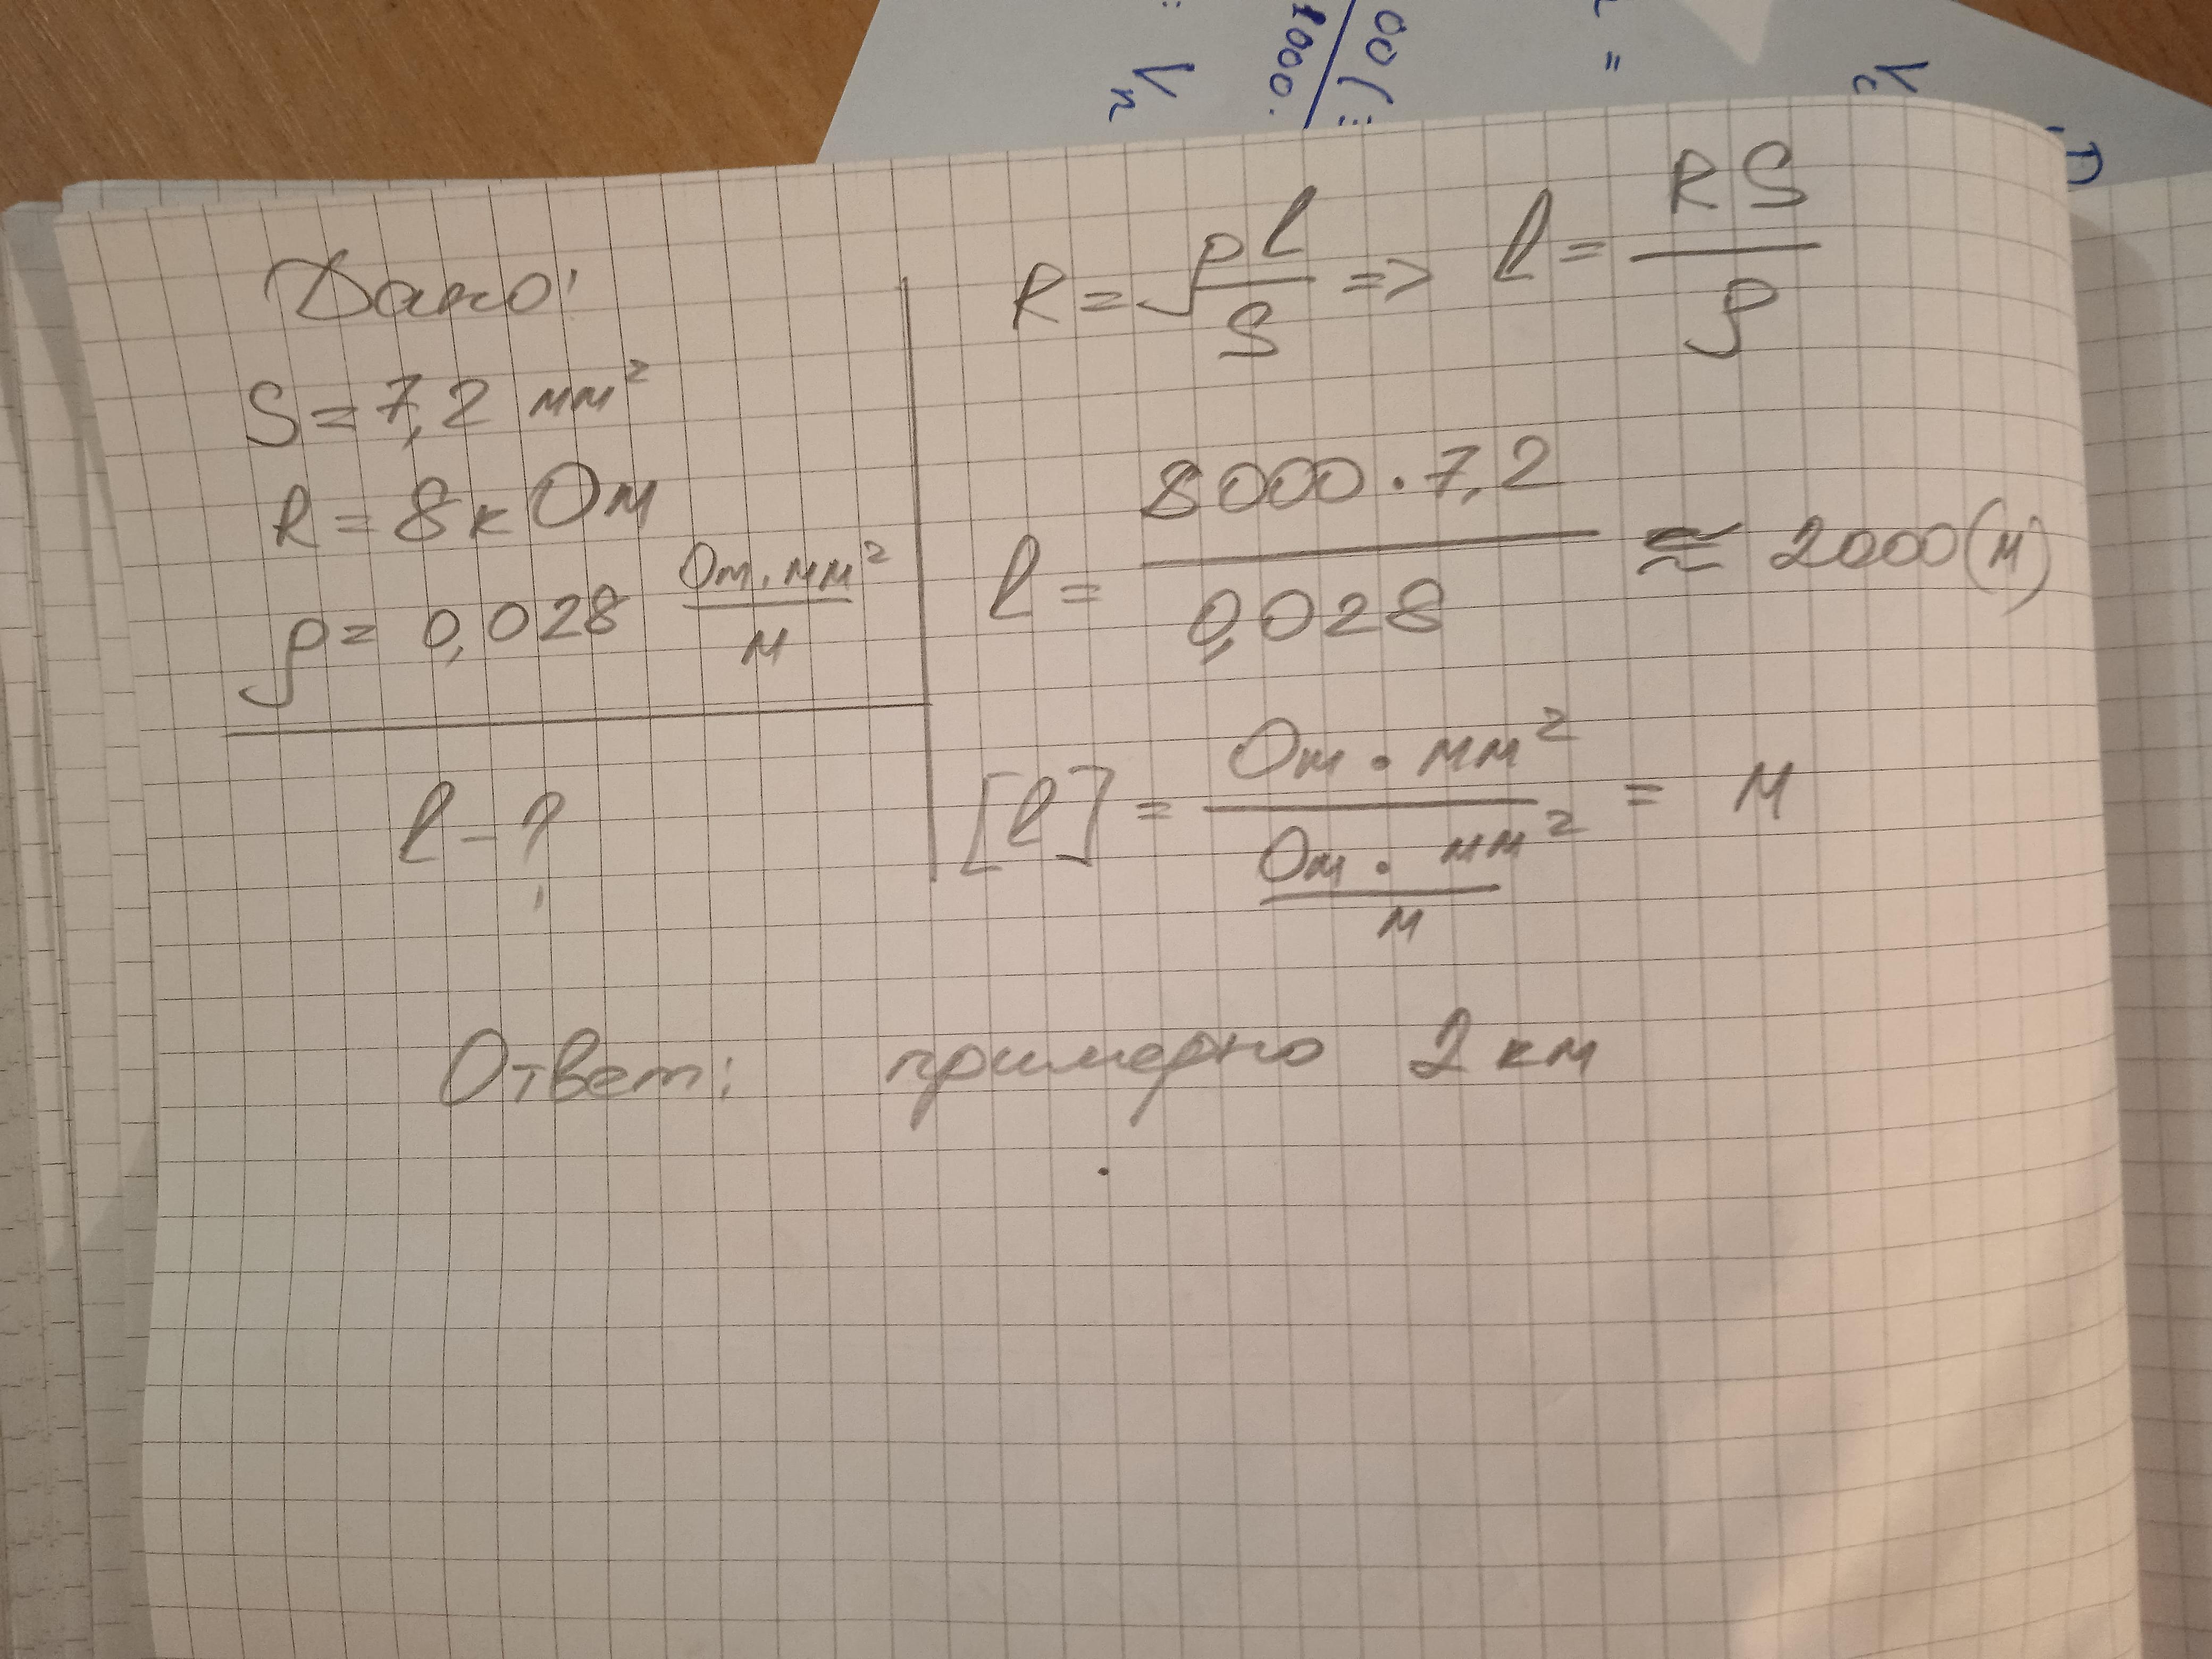 Vп
00(:
1000.
=
Vс
Дано:
S = 7,2 мм²
R = 8 кОм
ρ = 0,028 Ом·мм²/м
l - ?
R = ρl/S => l = RS/ρ
l = 8000·7,2/0,028 ≈ 2000(м)
[l] = Ом·мм²/(Ом·мм²/м) = м
Ответ: примерно 2 км